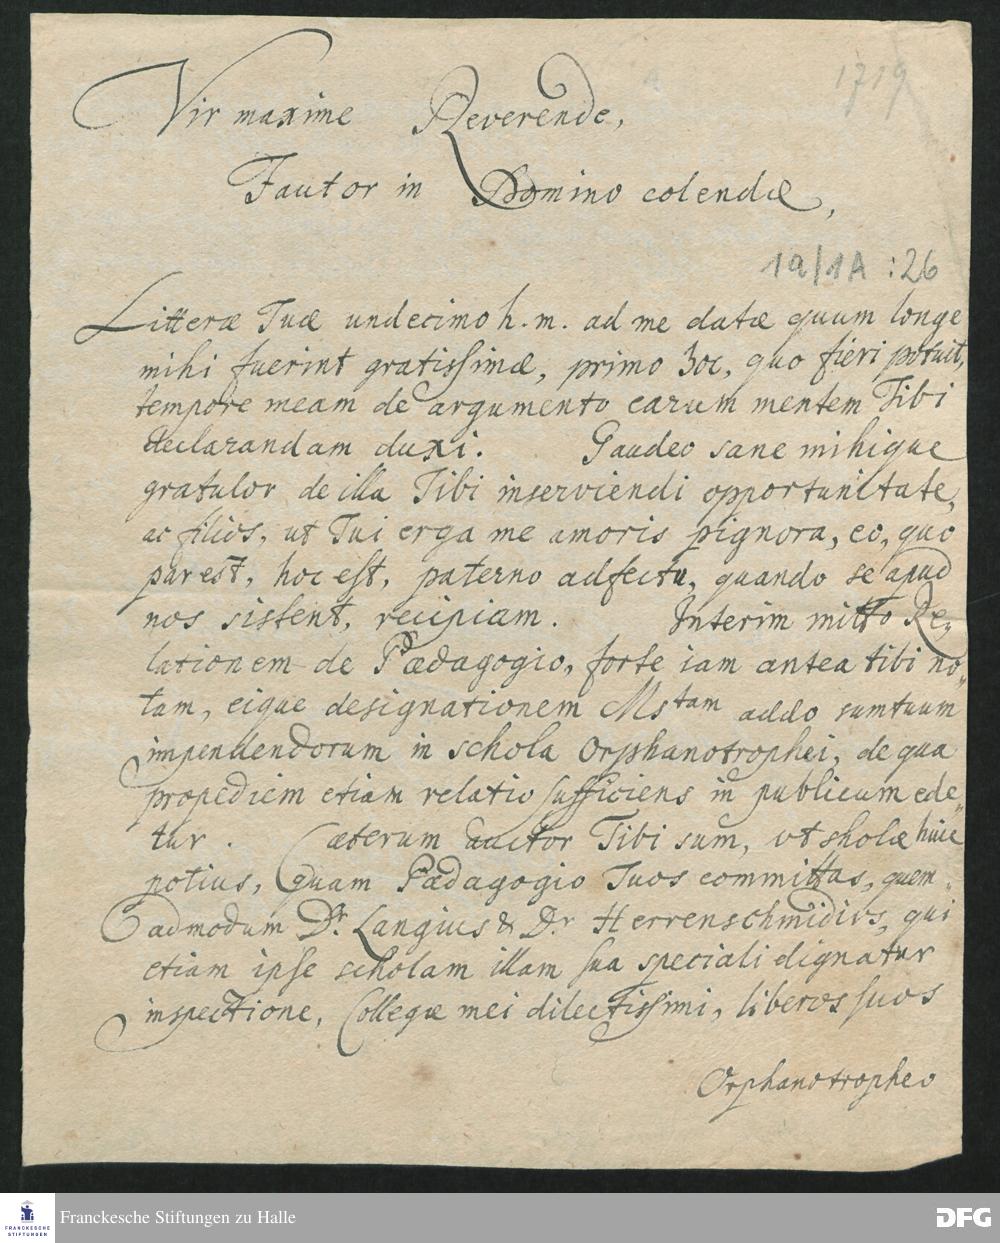 1719
Vir maxime Reverende,
Fautor in Domino colende,
1a/1A : 26
Litteræ Tuæ undecimo h. m. ad me datæ quum longe
mihi fuerint gratissimæ, primo hoc, quo fieri potuit,
tempore meam de argumento earum mentem Tibi
declarandam duxi. Gaudeo sane mihique
gratulor de illa Tibi inserviendi opportunitate,
ac filios, ut Tui erga me amoris pignora, eo, quo
par est, hoc est, paterno adfectu, quando se apud
nos sistent, recipiam. Interim mitto Re-
lationem de Pædagogio, forte iam antea tibi no-
tam, eique designationem Mstam addo sumtuum
impendendorum in schola Orphanotrophei, de qua
propediem etiam relatio sufficiens in publicum ede-
tur. Cæterum auctor Tibi sum, vt sholæ huic
potius, quam Pædagogio Tuos committas, quem-
admodum Dr. Langius & Dr Herrenschmidivs, qui
etiam ipse scholam illam sua speciali dignatur
inspectione, Collegæ mei dilectissimi, liberos suos
Orphanotropheo
Franckesche Stiftungen zu Halle
FRANCKESCHE
STIFTUNGEN
DFG